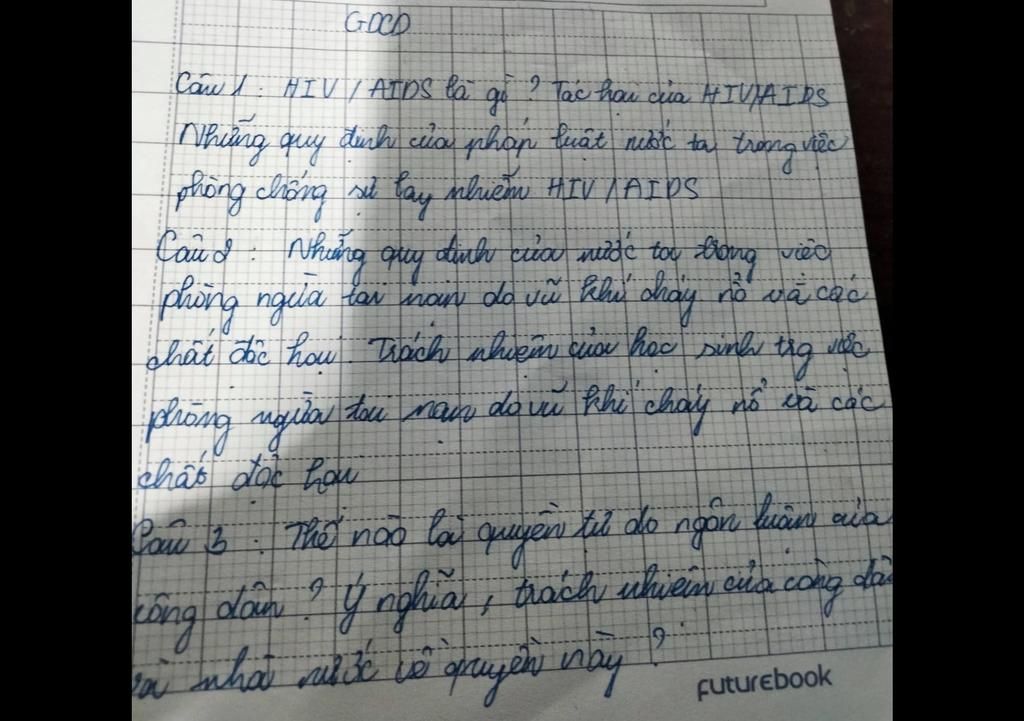 GDCD
Câu 1 : HIV / AIDS là gì ? Tác hại của HIV/AIDS
Những quy định của pháp luật nước ta trong việc
phòng chống sự lây nhiễm HIV / AIDS
Câu 2 : Những quy định của nước ta trong việc
phòng ngừa tai nạn do vũ khí cháy nổ và các
chất độc hại. Trách nhiệm của học sinh trg việc
phòng ngừa tai nạn do vũ khí cháy nổ và các
chất độc hại
Câu 3 : Thế nào là quyền tự do ngôn luận của
công dân ? Ý nghĩa , trách nhiệm của công dân
và nhà nước về quyền này ?
FUTUREBOOK